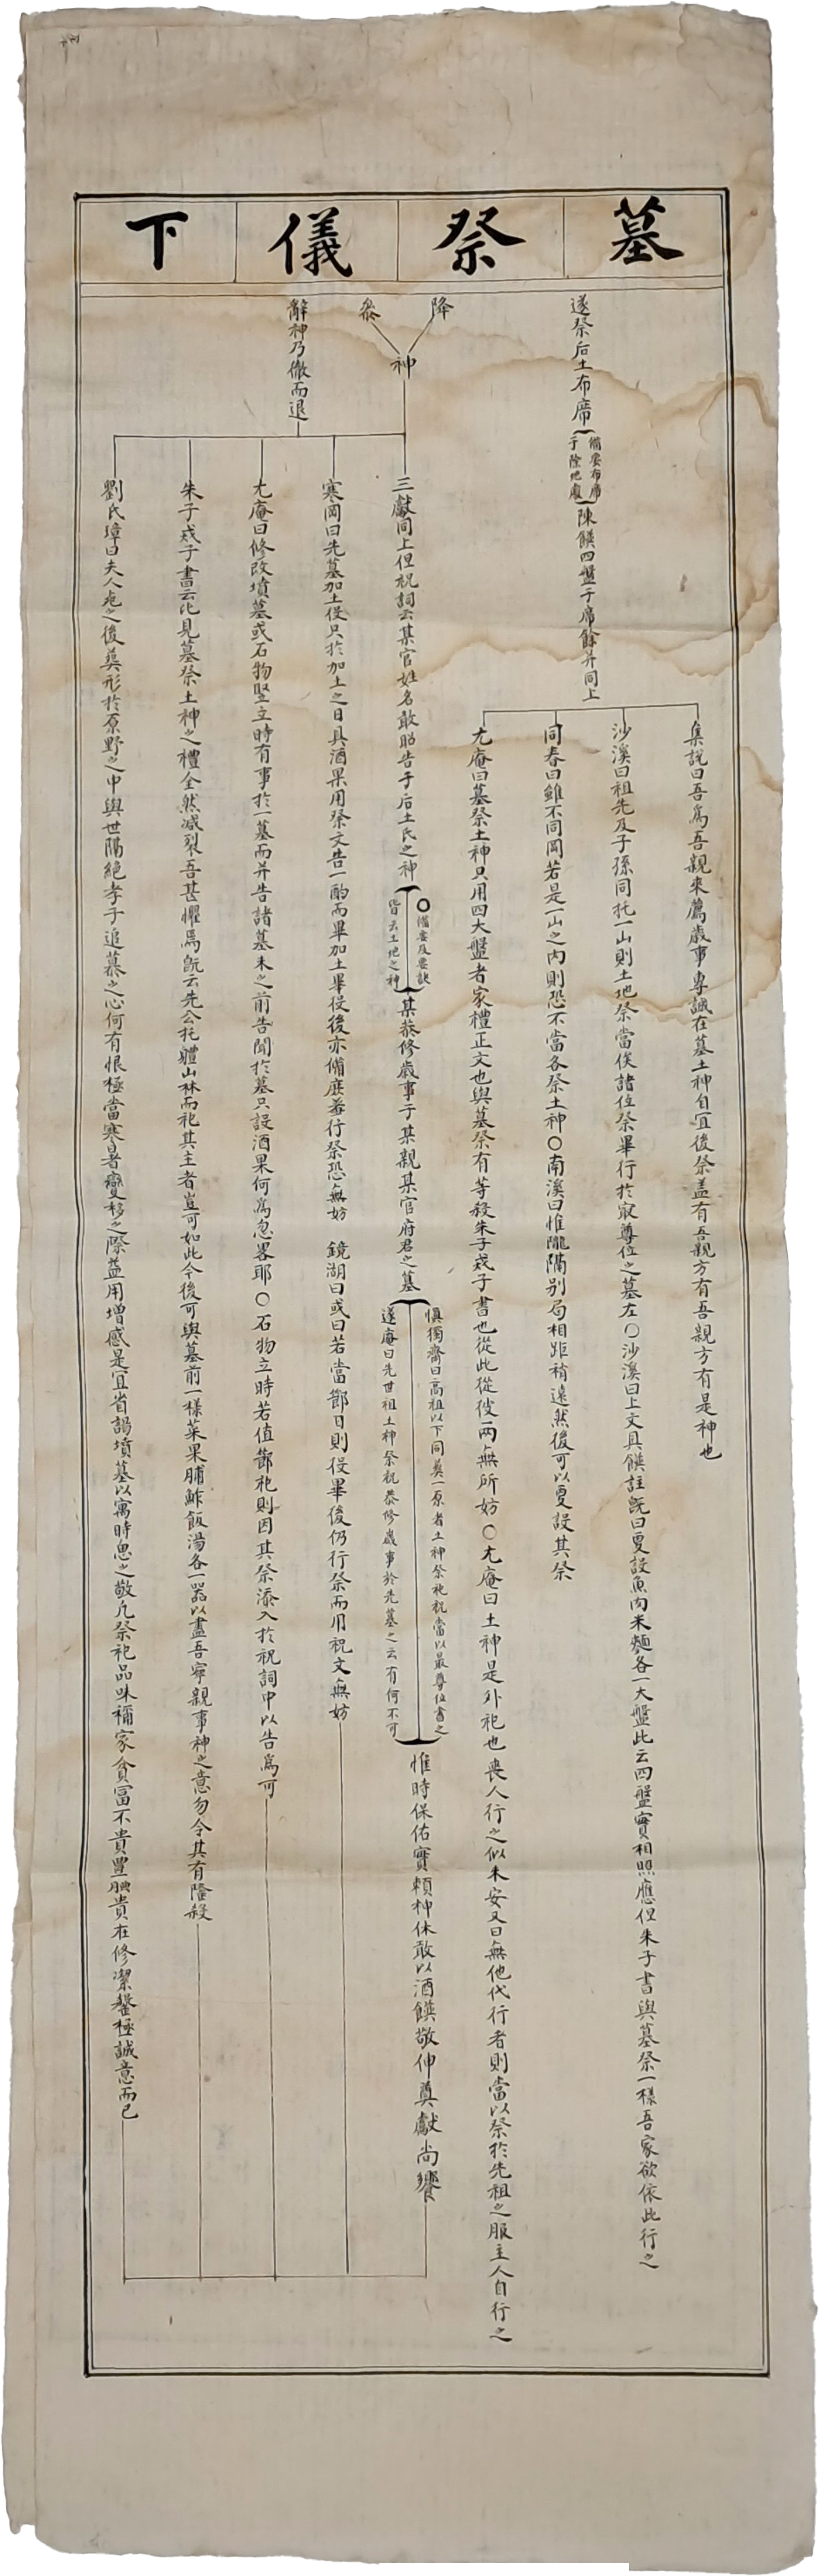 墓祭儀下
遂祭后土布席
備要布席
于除地處
陳饌四盤于席餘并同上
集說曰吾爲吾親來薦歲事專誠在墓土神自宜後祭盖有吾親方有吾親方有是神也
沙溪曰祖先及子孫同托一山則土地祭當俟諸位祭畢行於㝡尊位之墓左○沙溪曰上文具饌註旣曰更設魚肉米麵各一大盤此云四盤實相照應但朱子書與墓祭一樣吾家欲依此行之
同春曰雖不同岡若是一山之內則恐不當各祭土神○南溪曰惟隴隔別局相距稍遠然後可以更設其祭
尤庵曰墓祭土神只用四大盤者家禮正文也與墓祭有等殺朱子戒子書也從此從彼兩無所妨○尤庵曰土神是外祀也喪人行之似未安又曰無他代行者則當以祭於先祖之服主人自行之
降
叅
神
辭神乃徹而退
三獻同上但祝詞云某官姓名敢昭告于后土氏之神
○備要及要訣
皆云土地之神
某恭修歲事于某親某官府君之墓
愼獨齋曰高祖以下同奠一原者土神祭祀祝當以最尊位書之
遂庵曰先世祖土神祭祝恭修歲事於先墓之云有何不可
惟時保佑實賴神休敢以酒饌敬伸奠獻尚饗
寒岡曰先墓加土役只於加土之日具酒果用祭文告一酌而畢加土畢役後亦備庶羞行祭恐無妨 鏡湖曰或曰若當節日則役畢後仍行祭而用祝文無妨
尤庵曰修改墳墓或石物竪立時有事於一墓而并告諸墓未之前告聞於墓只設酒果何爲忽畧耶○石物立時若值節祀則因其祭添入於祝詞中以告爲可
朱子戒子書云比見墓祭土神之禮全然减裂吾甚懼焉旣云先公托軆山林而祀其主者豈可如此今後可與墓前一樣菜果脯鮓飯湯各一器以盡吾寧親事神之意勿令其有隆殺
劉氏璋曰夫人死之後葬形於原野之中與世隔絶孝子追慕之心何有恨極當寒暑變移之際益用增感是宜省謁墳墓以寓時思之敬凡祭祀品味稱家貧富不貴豊腆貴在修潔罄極誠意而已